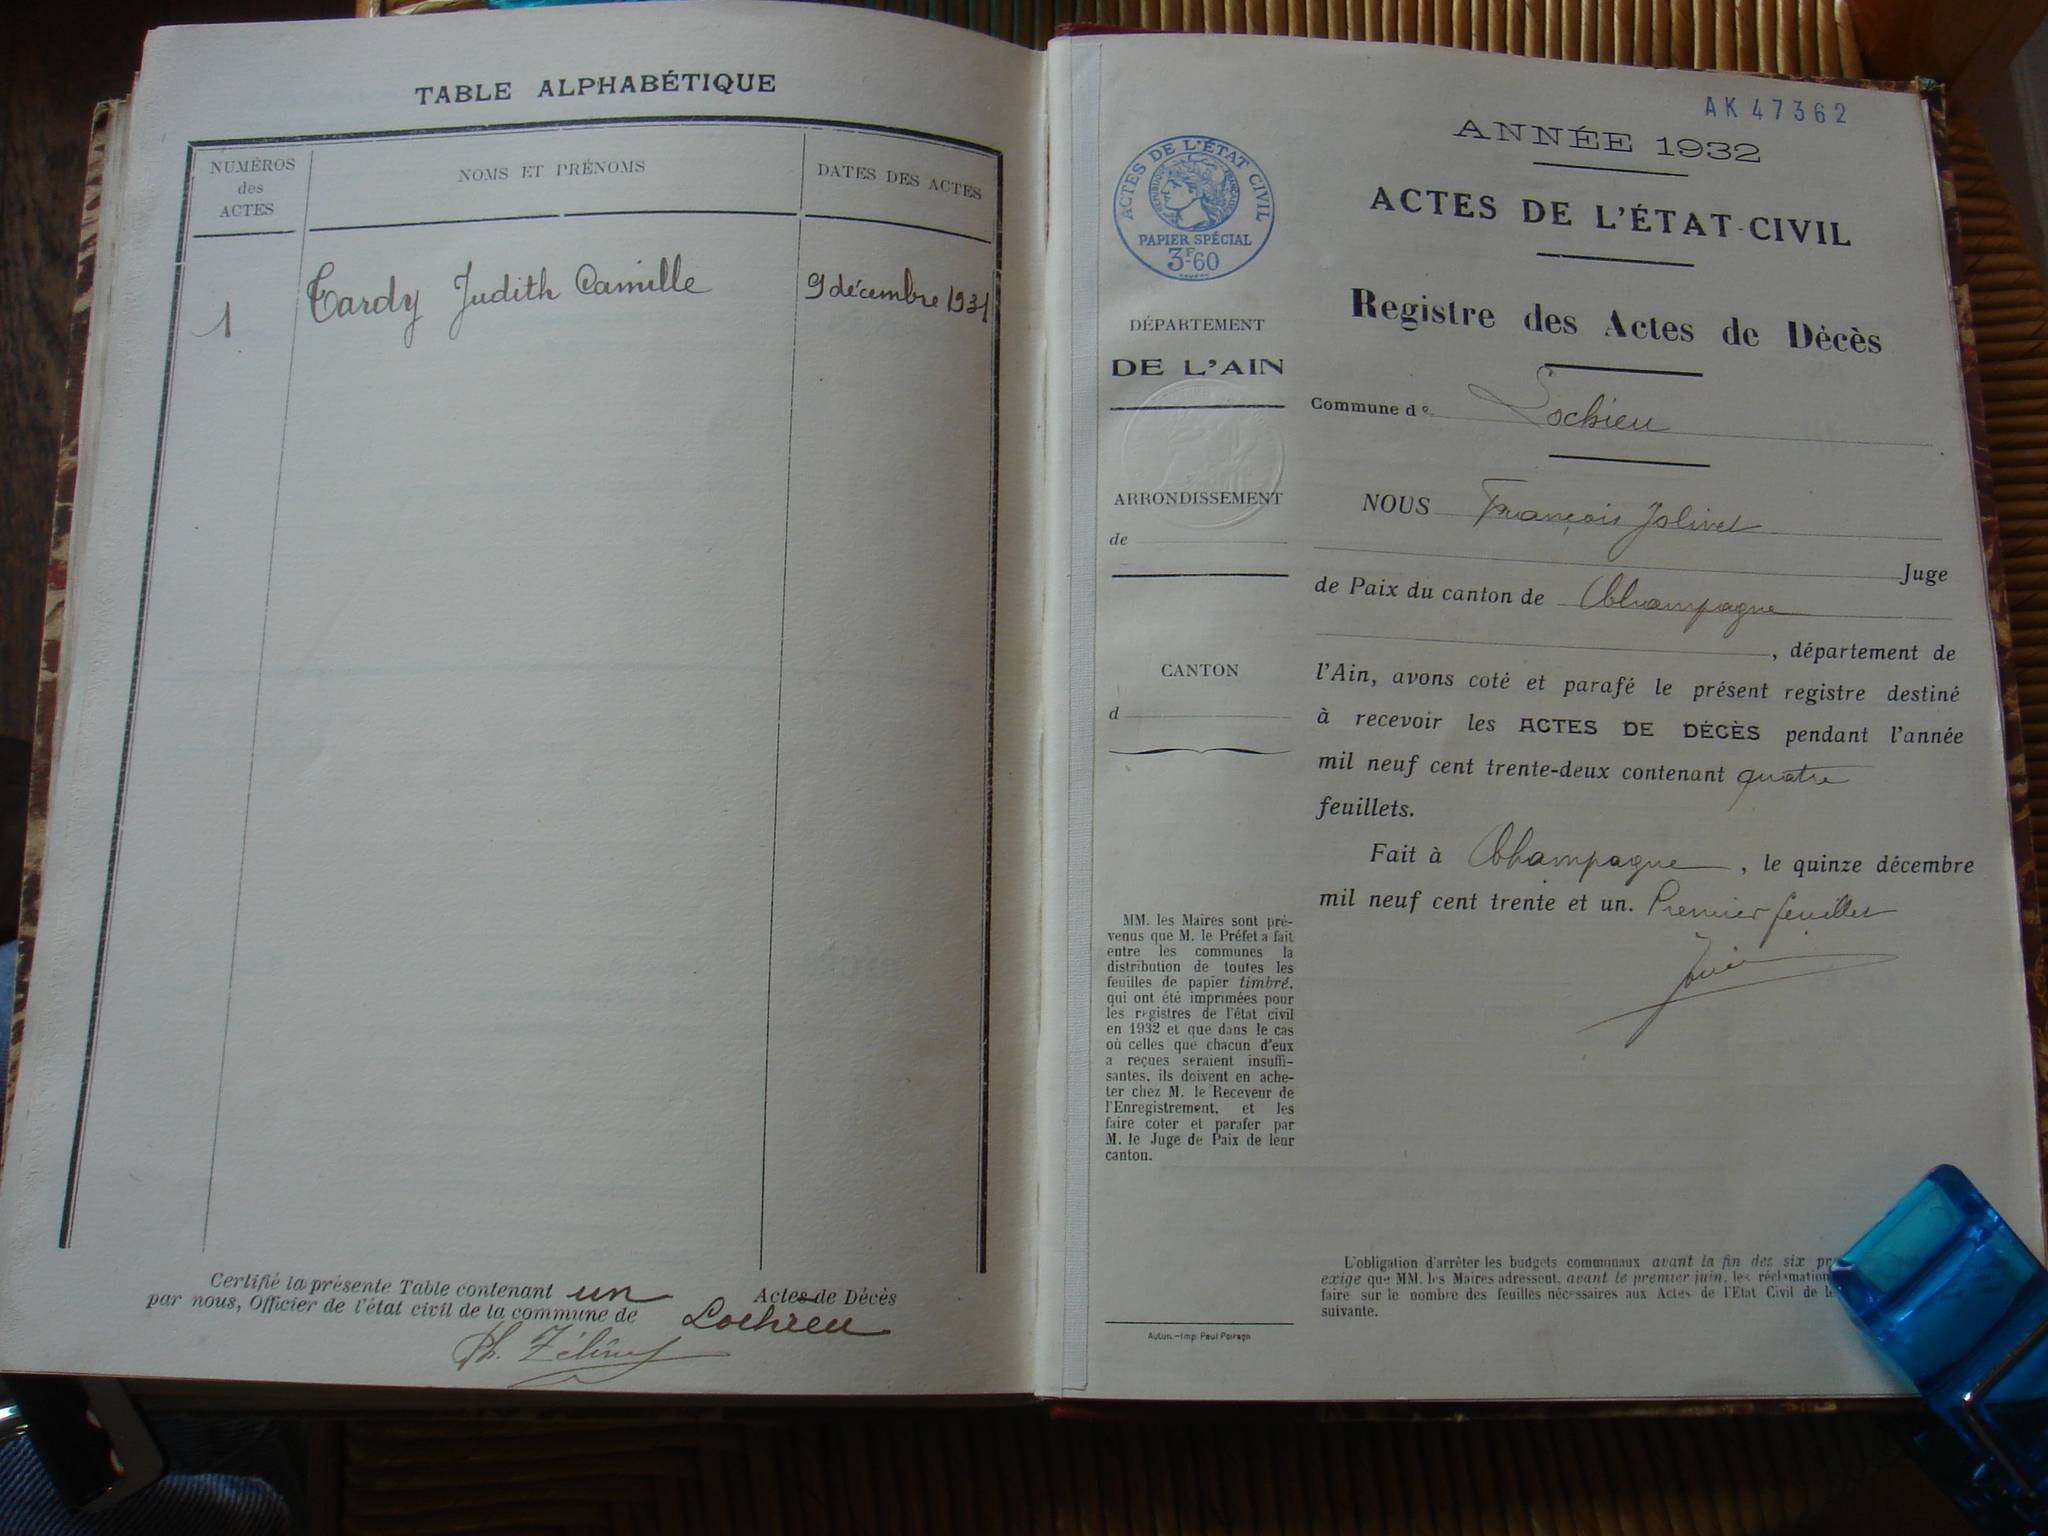 TABLE ALPHABÉTIQUE
NUMÉROS
des
ACTES
NOMS ET PRÉNOMS
DATES DES ACTES
1
Tardy Judith Camille
9 décembre 1931
Certifié la présente Table contenant un Actes de Décès
par nous, Officier de l'état civil de la commune de Lochieu
AK 47362
ANNÉE 1932
ACTES DE L'ÉTAT-CIVIL
Registre des Actes de Décès
Commune de Lochieu
ACTES DE L'ÉTAT CIVIL
RÉPUBLIQUE FRANÇAISE
PAPIER SPÉCIAL
3F60
DÉPARTEMENT
DE L'AIN
ARRONDISSEMENT
de
CANTON
d
NOUS François Jolivet
Juge
de Paix du canton de Champagne
, département de
l'Ain, avons coté et parafé le présent registre destiné
à recevoir les ACTES DE DÉCÈS pendant l'année
mil neuf cent trente-deux contenant quatre
feuillets.
Fait à Champagne, le quinze décembre
mil neuf cent trente et un. Premier feuillet
MM. les Maires sont pré-
venus que M. le Préfet a fait
entre les communes la
distribution de toutes les
feuilles de papier timbré,
qui ont été imprimées pour
les registres de l'état civil
en 1932 et que dans le cas
où celles que chacun d'eux
a reçues seraient insuffi-
santes, ils doivent en ache-
ter chez M. le Receveur de
l'Enregistrement, et les
faire coter et parafer par
M. le Juge de Paix de leur
canton.
L'obligation d'arrêter les budgets communaux avant la fin des six
exige que MM. les Maires adressent, avant le premier juin, les
faire sur le nombre des feuilles nécessaires aux Actes de l'Etat Civil de
suivante.
Autun.—Imp. Paul